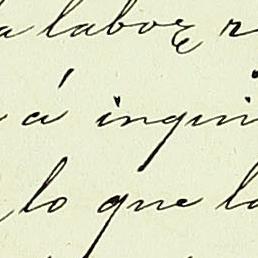 a labor r
á inqui
lo que la